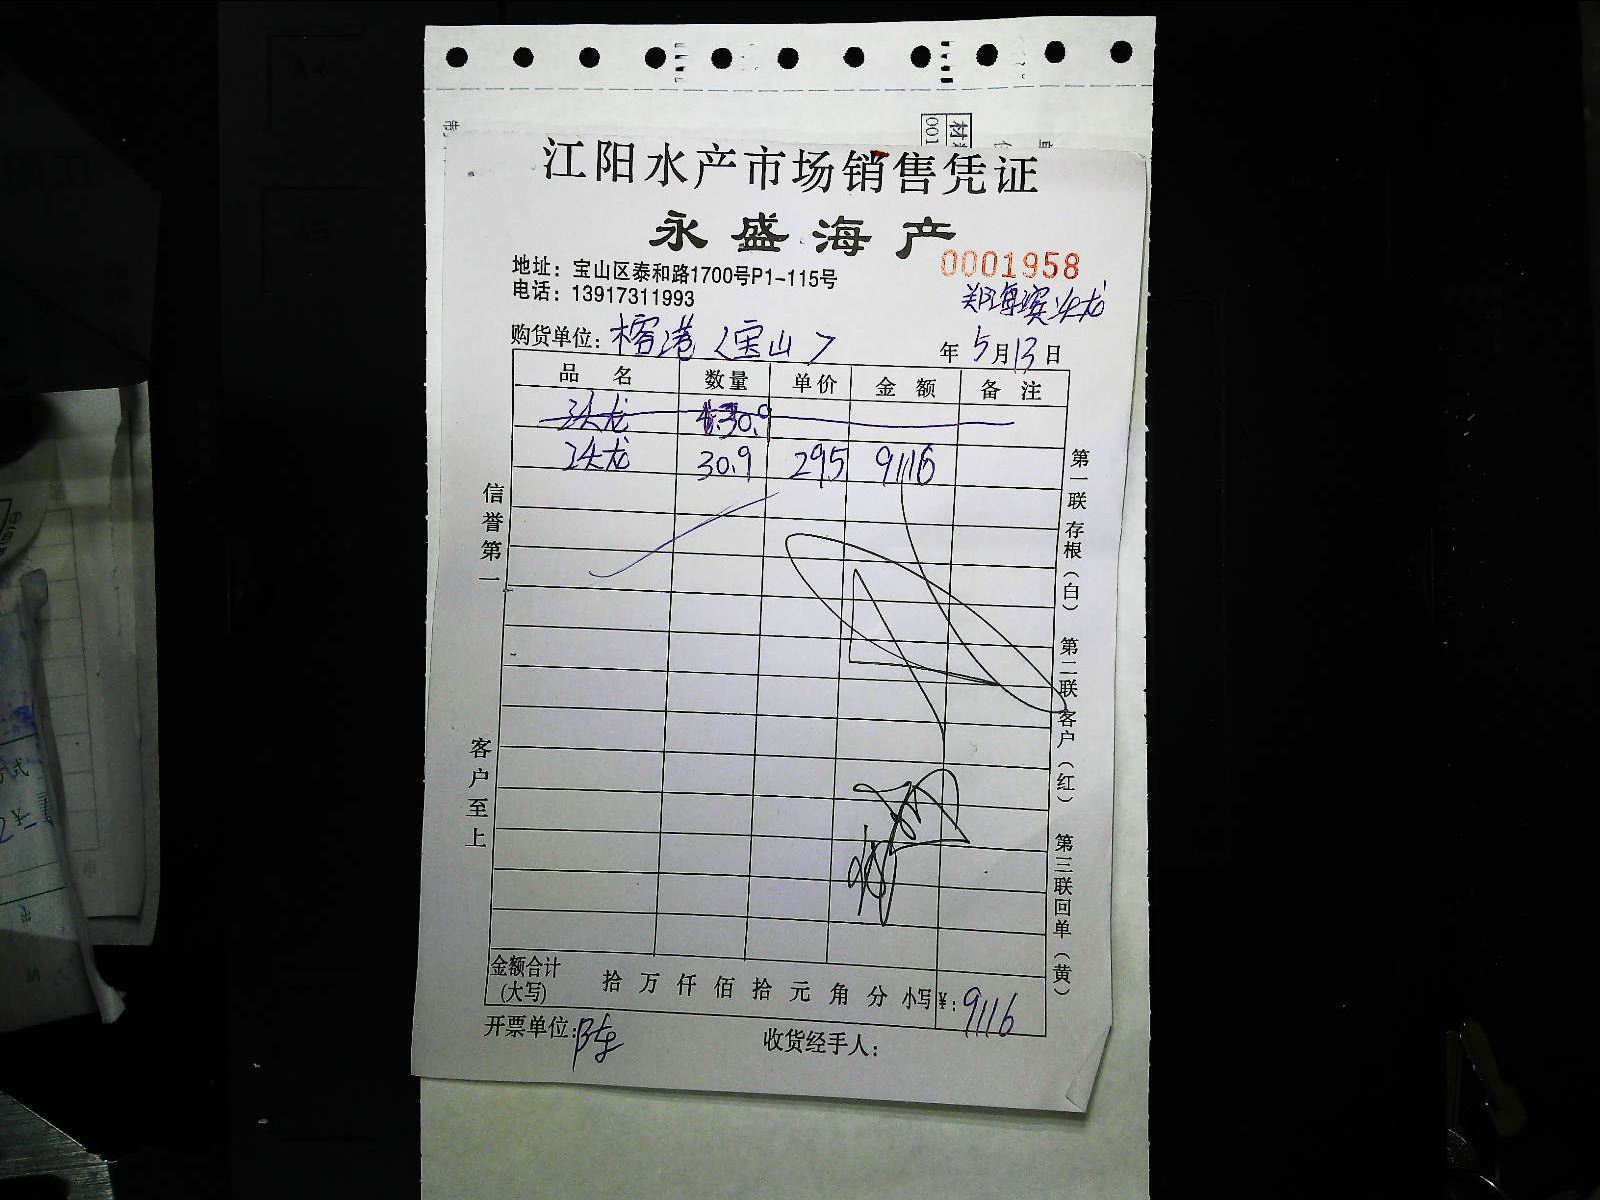 江阳水产市场销售凭证
永盛海产
地址：宝山区泰和路1700号P1-115号
0001958
电话：13917311993
购货单位：榕港〈宝山〉
年 5月13日
品名 数量 单价 金额 备注
头龙 30.9
头龙 30.9 295 9116
信誉第一
客户至上
第一联存根（白） 第二联客户（红） 第三联回单（黄）
金额合计（大写） 拾 万 仟 佰 拾 元 角 分 小写¥：9116
开票单位：陈 收货经手人：